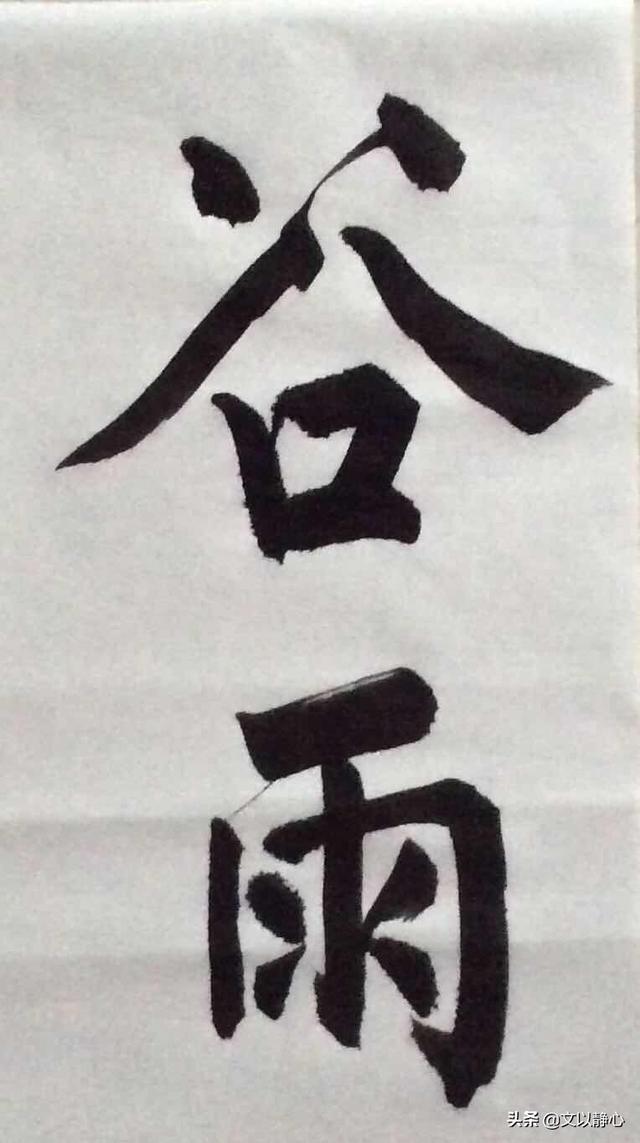 谷雨
头条 @文以静心